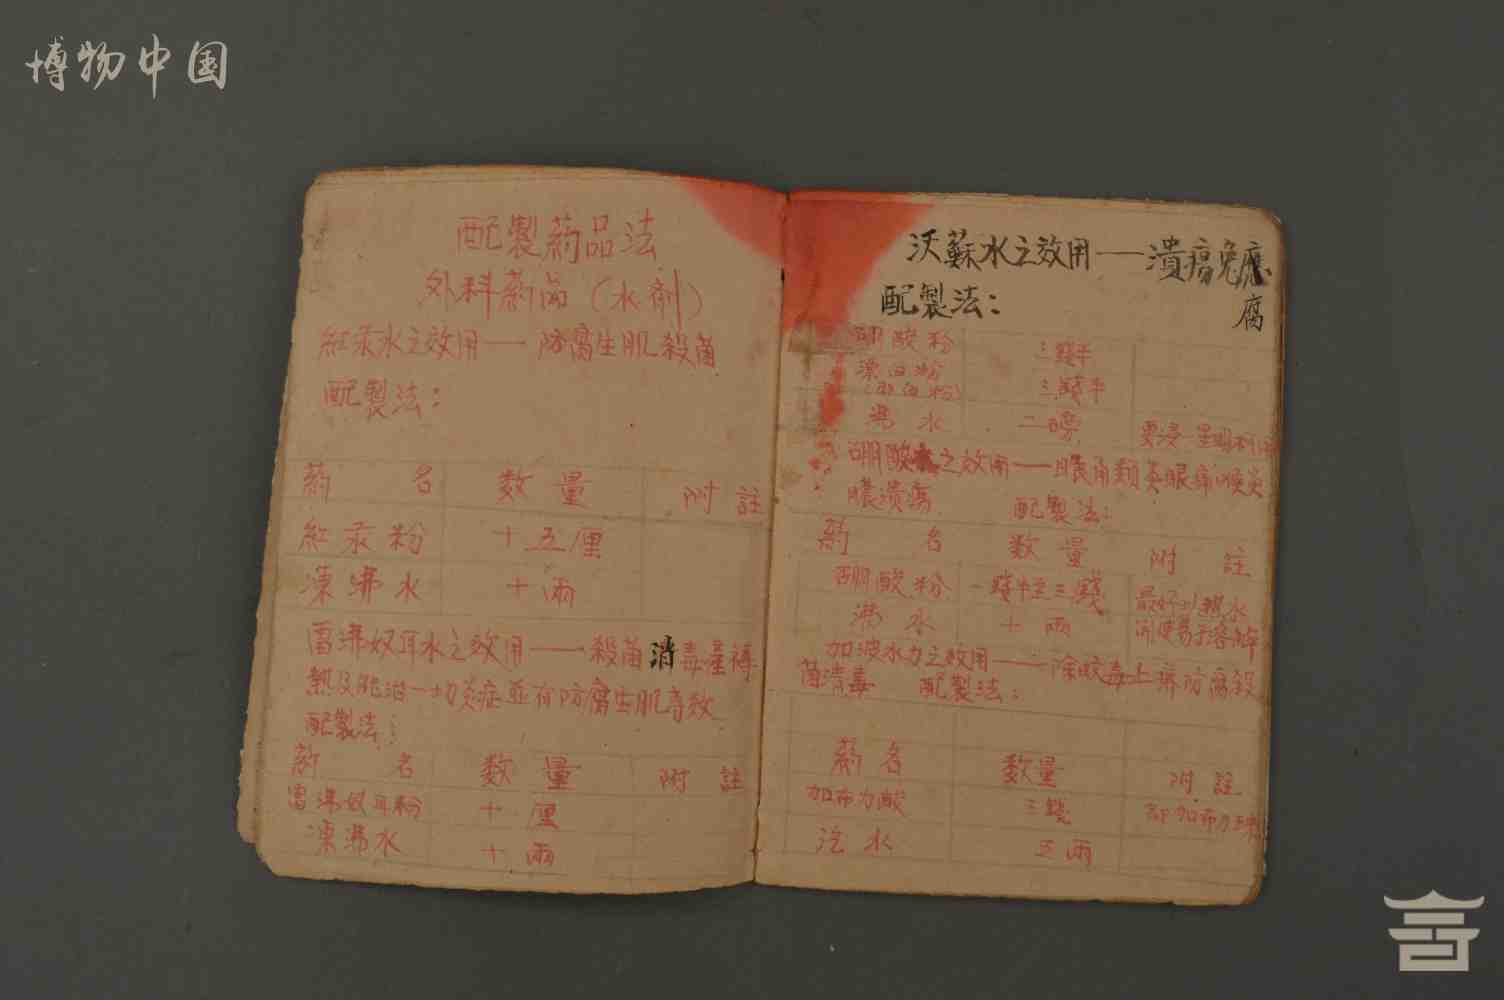 博物中国
配製葯品法
外科葯品（水劑）
紅汞水之效用——防腐生肌殺菌
配製法：
葯名 数量 附註
紅汞粉 十五厘
凍沸水 十兩
雷沸奴耳水之效用——殺菌消毒產褥
熱及能治一切炎症並有防腐生肌奇效
配製法：
葯名 数量 附註
雷沸奴耳粉 十厘
凍沸水 十兩
沃蘇水之效用——潰瘍免應
腐
配製法：
硼酸粉 三錢半
漂白粉 三錢半
沸水 二磅
硼酸 之效用—— 炎眼痛喉炎
膿潰瘍 配製法：
葯名 数量 附註
硼酸粉 一錢半至三錢 最好以熱水
沸水 十兩 開使易于容解
加波水力之效用——除蛟毒止癢防腐殺
菌清毒 配製法：
葯名 数量 附註
加布力酸 三錢 即加布力
汽水 五兩